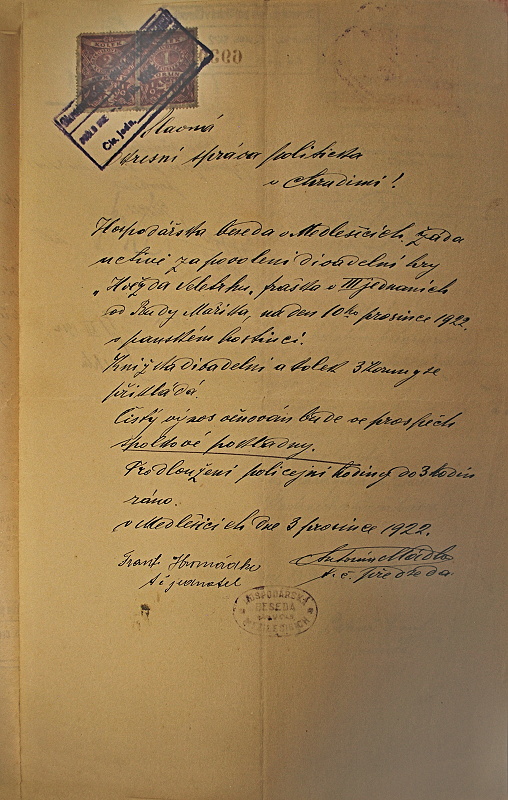 KOLEK
2 1
KORUNA
Čís. jedn.
Slavná
okresní správa politická
v Chrudimi!
Hospodářská beseda v Medlešicích žádá
uctivě za povolení divadelní hry
"Hvězda Seletku", fraška v III jednáních
od Rudy Maříka, na den 10ho prosince 1922.
v panském hostinci.
Knížka divadelní a kolek 3 koruny se
přikládá.
Čistý výnos věnován bude ve prospěch
spolkové pokladny.
Prodloužení policejní hodiny do 3 hodin
ráno.
v Medlešicích dne 3 prosince 1922.
Frant Hromádko
t. č. předseda.
t. č. jednatel
HOSPODÁŘSKÁ
BESEDA
V MEDLEŠICÍCH